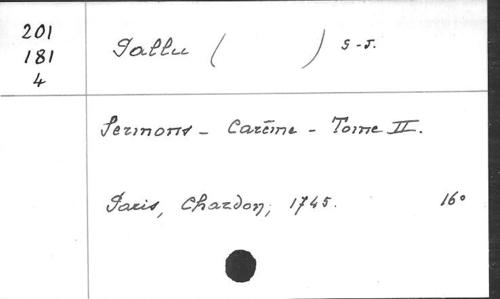 201
181
4
Pallu ( ) S-J.
Sermons - Carême - Tome II.
Paris, Chardon, 1745. 16°